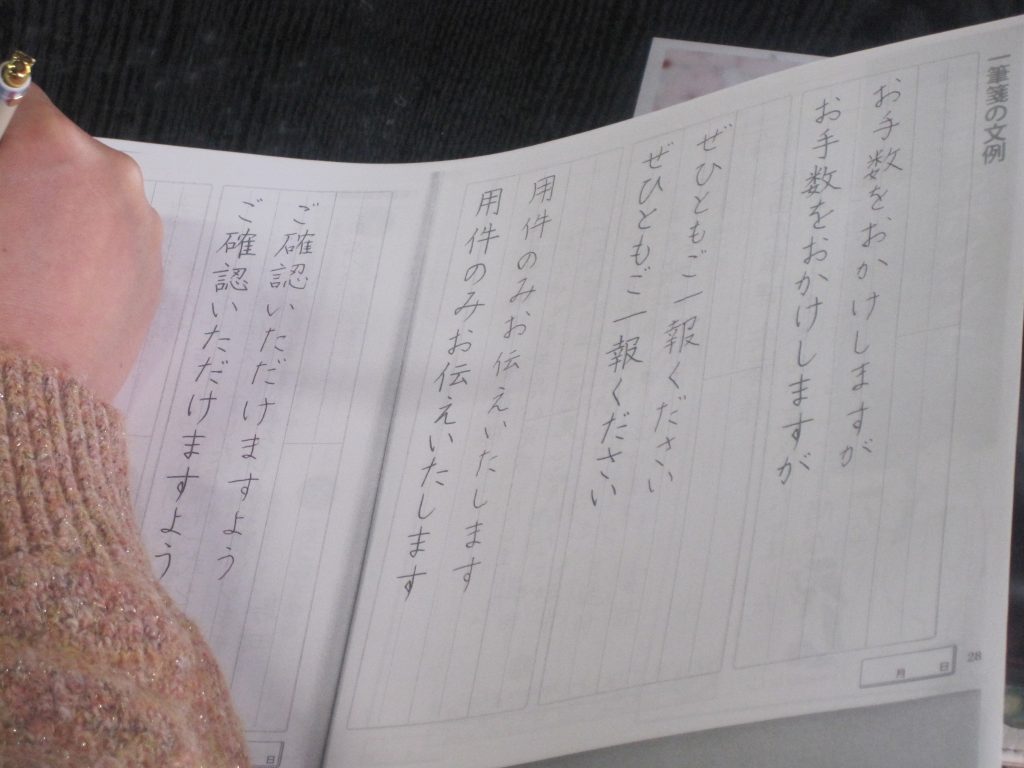 一筆箋の文例
お手数をおかけしますが
お手数をおかけしますが
ぜひともご一報ください
ぜひともご一報ください
用件のみお伝えいたします
用件のみお伝えいたします
ご確認いただけますよう
ご確認いただけますよう
月 日
28
日